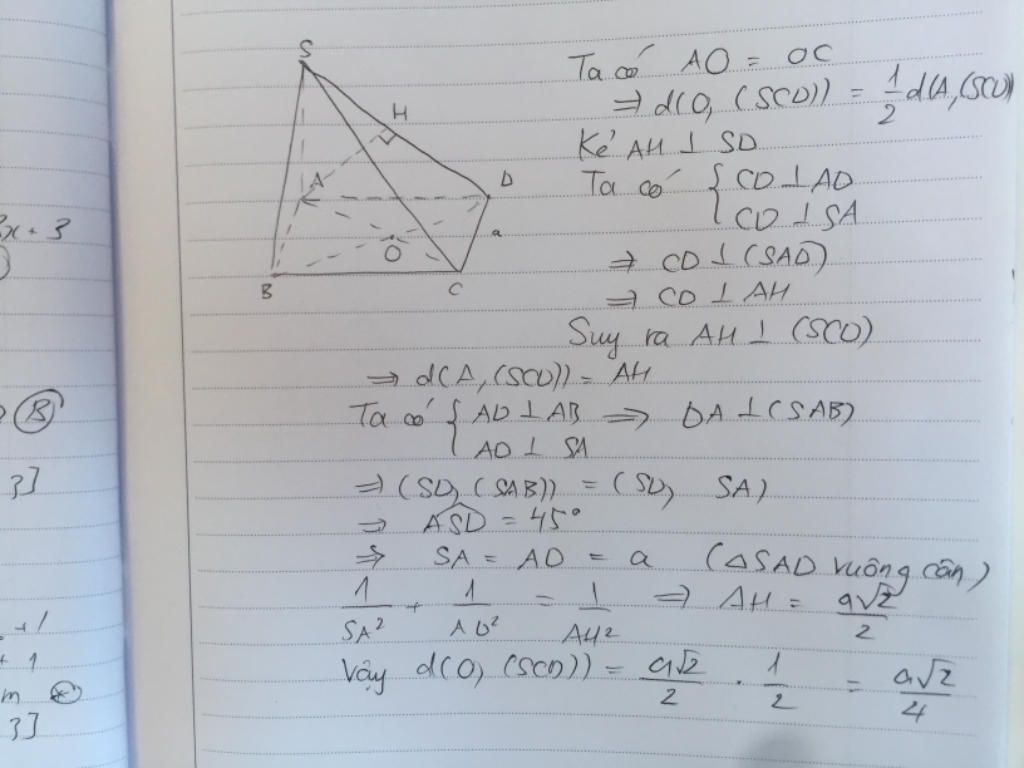 S
H
A
D
a
O
B
C
Ta có AO = OC
⇒ d(O, (SCD)) = 1/2 d(A, (SCD))
Kẻ AH ⊥ SD
Ta có { CD ⊥ AD
CD ⊥ SA
⇒ CD ⊥ (SAD)
⇒ CD ⊥ AH
Suy ra AH ⊥ (SCD)
⇒ d(A, (SCD)) = AH
Ta có { AD ⊥ AB ⇒ DA ⊥ (SAB)
AD ⊥ SA
⇒ (SD, (SAB)) = (SD, SA)
⇒ ASD = 45°
⇒ SA = AD = a (△SAD vuông cân)
1/SA² + 1/AD² = 1/AH² ⇒ AH = a√2/2
Vậy d(O, (SCD)) = a√2/2 . 1/2 = a√2/4
3x + 3
B
3]
+1
+ 1
m
3]